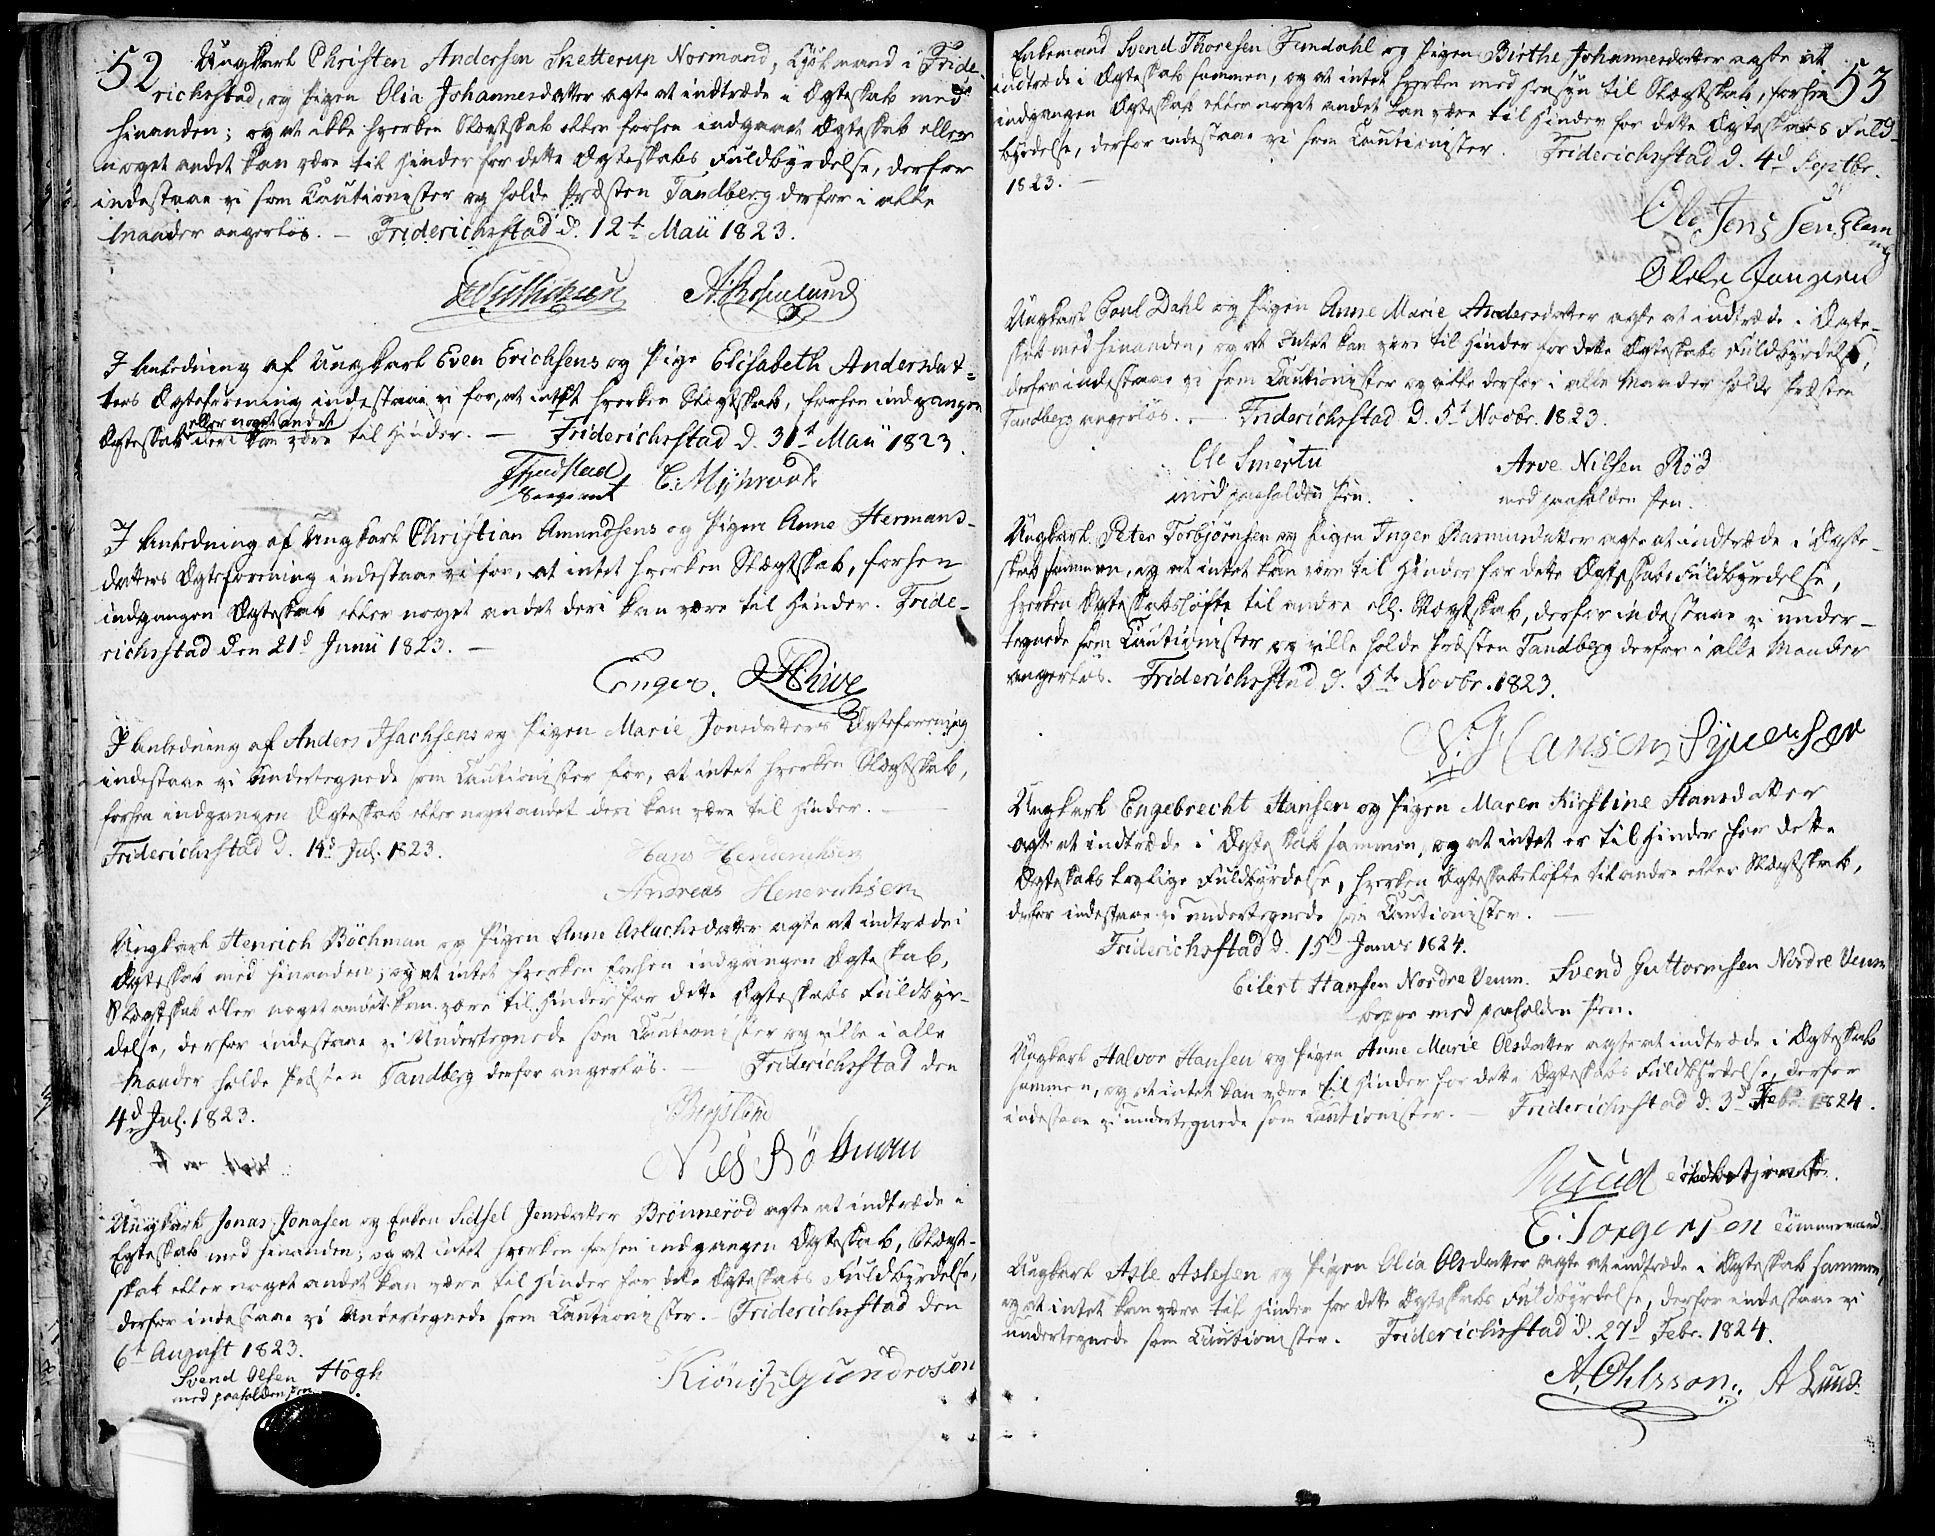 52
Ungkarl Christen Andersen Sketterup Normand, Lystmand i Fride-
richsstad, og Pigen Olia Johannesdatter agte at indtræde i Ægteskab med
hinanden; og at ikke hverken Slægtskab eller forhen indgaaet Ægteskab eller
noget andet kan være til Hinder for dette Ægteskabs Fuldbyrdelse, derfor
indestaae vi som Cautionister og holde Præsten Tandberg derfor i alle
Maader angerløs. – Friderichsstad d. 12t Maii 1823.
I Anledning af Ungkarl Even Erichsens og Pige Elisabeth Andersdat-
ters Ægteforening indestaae vi for, at intet hverken Slægtskab, forhen indgangen
eller noget andet
Ægteskab deri kan være til Hinder. – Friderichsstad d. 31t Maii 1823.
Sergeant
I Anledning af Ungkarl Christian Amundsens og Pigen Anne Hermans-
datters Ægteforening indestaae vi for, at intet hverken Slægtskab, forhen
indgangen Ægteskab eller noget andet deri kan være til Hinder. Fride-
richsstad den 21d Junii 1823. –
Enger.
I Anledning af Anders Isachsens og Pigen Marie Jonsdatters Ægteforening
indestaae vi undertegnede som Cautionister for, at intet hverken Slægtskab,
forhen indgangen Ægteskab eller noget andet deri kan være til Hinder. –
Friderichsstad d. Jul. 1823.
Hans Henderichsen
Andreas Henerichsen
Ungkarl Henrich Böchman og Pigen Anne Aslachsdatter agte at indtræde i
Ægteskab med hinanden; og at intet hverken forhen indgangen Ægteskab,
Slægtskab eller noget andet kan være til Hinder for dette Ægteskabs Fuldbyr-
delse, derfor indestaae vi Undertegnede som Cautionister og ville i alle
Maader holde Præsten Tandberg derfor angerløs. – Fridrichsstad den
4d Jul. 1823.
Ungkarl Jonas Jonasen og Enken Sidsel Jensdatter Brönneröd agte at indtræde i
Egteskab med hinanden; og at intet hverken forhen indgangen Ægteskab, Slægt-
skab eller noget andet kan være til Hinder for dette Ægteskabs Fuldbyrdelse,
derfor indestaae vi Undertegnede som Cautionister. – Friderichsstad den
6t August 1823.
Svend Olsen Högh
med paaholden Pen
Gundrosen
53
Enkemand Svend Thoresen Femdahl og Pigen Birthe Johannesdatter agte at
indtræde i Ægteskab sammen, og at intet hverken med Hensyn til Slægtskab, forhen
indgangen Ægteskab eller noget andet kan være til Hinder for dette Ægteskabs Fuld-
byrdelse, derfor indestaae vi som Cautionister. Friderichsstad d. 4d Septbr.
1823. –
Ole Jens Sen
Ungkarl Poul Dahl og Pigen Anne Marie Andersdatter agte at indtræde i Ægte-
skab med hinanden, og at Intet kan være til Hinder for dette Ægteskabs Fuldbyrdelse,
derfor indestaae vi som Cautionister og ville derfor i alle Maader holde Præsten
Tandberg angerløs. – Friderichsstad d. 5t Novbr. 1823.
Ole Smertu Arve Nilsen Rød
med paaholden Pen. med paaholden Pen.
Ungkarl Peter Torbjørnsen og Pigen Inger Rasmusdatter agte at indtræde i Ægte-
skab sammen, og at intet kan være til Hinder for dette Ægteskabs Fuldbyrdelse,
hverken Ægteskabsløfte til andre ell. Slægtskab, derfor indestaae vi under-
tegnede som Cautionister og ville holde Præsten Tandberg derfor i alle Maader
angerløs. Friderichsstad d. 5te Novbr. 1823.
N. Hansen
Ungkarl Engebrecht Hansen og Pigen Maren Kirstine Hansdatter
agte at indtræde i Ægteskab sammen, og at intet er til Hinder for dette
Ægteskabs lovlige Fuldbyrdelse, hverken Ægteskabsløfte til andre eller Slægtskab,
derfor indestaae vi undertegnede som Cautionister. –
Friderichsstad d. 15d Janr 1824.
Eilert Hansen Nordre Veum. Svend Guttormsen Nordre Veum
begge med paaholden Pen.
Ungkarl Halvor Hansen og Pigen Anne Marie Olsdatter agte at indtræde i Ægteskab
sammen, og at intet kan være til Hinder for dette Ægteskabs Fuldbyrdelse, derfor
indestaae vi undertegnede som Cautionister. – Friderichsstad d. 3d Febr. 1824.
Knud
E. Torgersen Tömmermand.
Ungkarl Asle Aslesen og Pigen Olia Olsdatter agte at indtræde i Ægteskab sammen,
og at intet kan være til Hinder for dette Ægteskabs Fuldbyrdelse, derfor indestaae vi
undertegnede som Cautionister. Friderichsstad d. 27d Febr. 1824.
A. Ohlsson. A Lund.